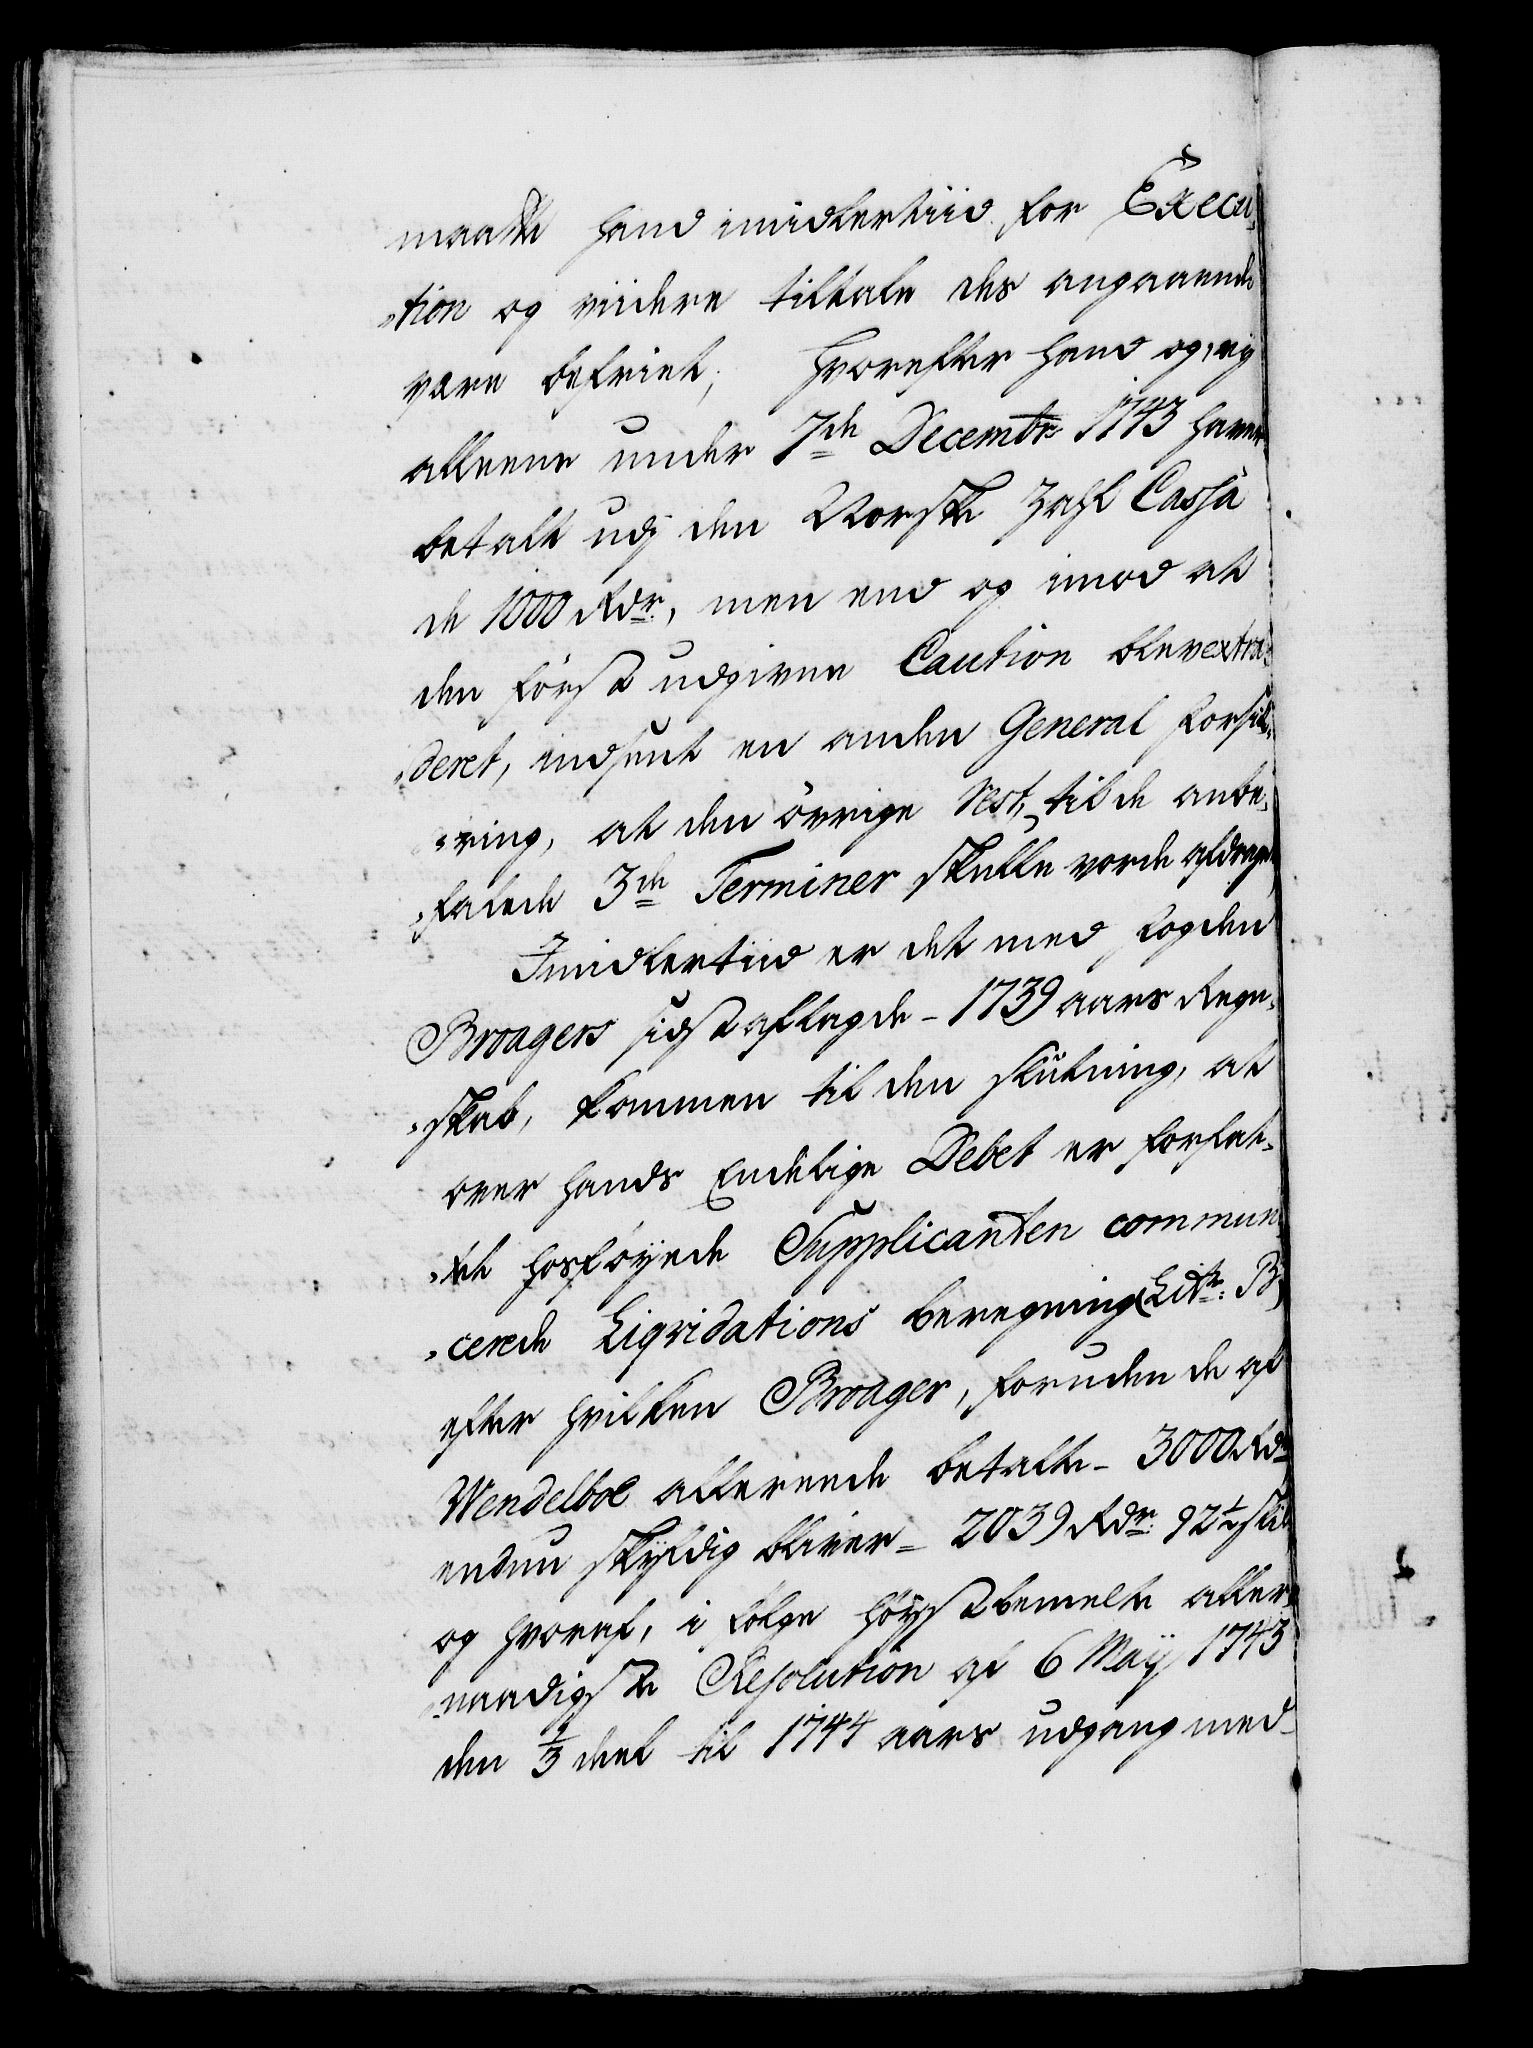 maatte hand imidlertiid for Execu,
,,tion og viidere tiltale des angaaende
være befriet; hvorefter hand og, ey
alleene under 7de Decembr 1743 haver
betalt udj den Norske Zahl Cassa
de 1000 Rdr, men end og imod at
den først udgivne Caution blev extra,
,,deret, indsent en anden General forsik,
,,ring, at den øvrige Rest, til de anbe,
,,falede 3de Terminer skulle vorde afdragen
Imidlertiid er det med fogden
Broagers sidst aflagde - 1739 aars Regn,
,,skab, kommen til den slutning, at
over hands Endelige Debet er forfat,
,,tet hosføyede Supplicanten communi
,,cerede Liqvidations beregning (Litr: B)
efter hvilken Broager, foruden de af
Wendelboe allereede betalte - 3000 Rdr
endnu skyldig bliver - 2039 Rdr: 92½ skil
og hvoraf, i følge høystbemelte aller,
,,naadigste Resolution af 6 Maÿ 1743
den ⅓ deel til 1744 aars udgang med